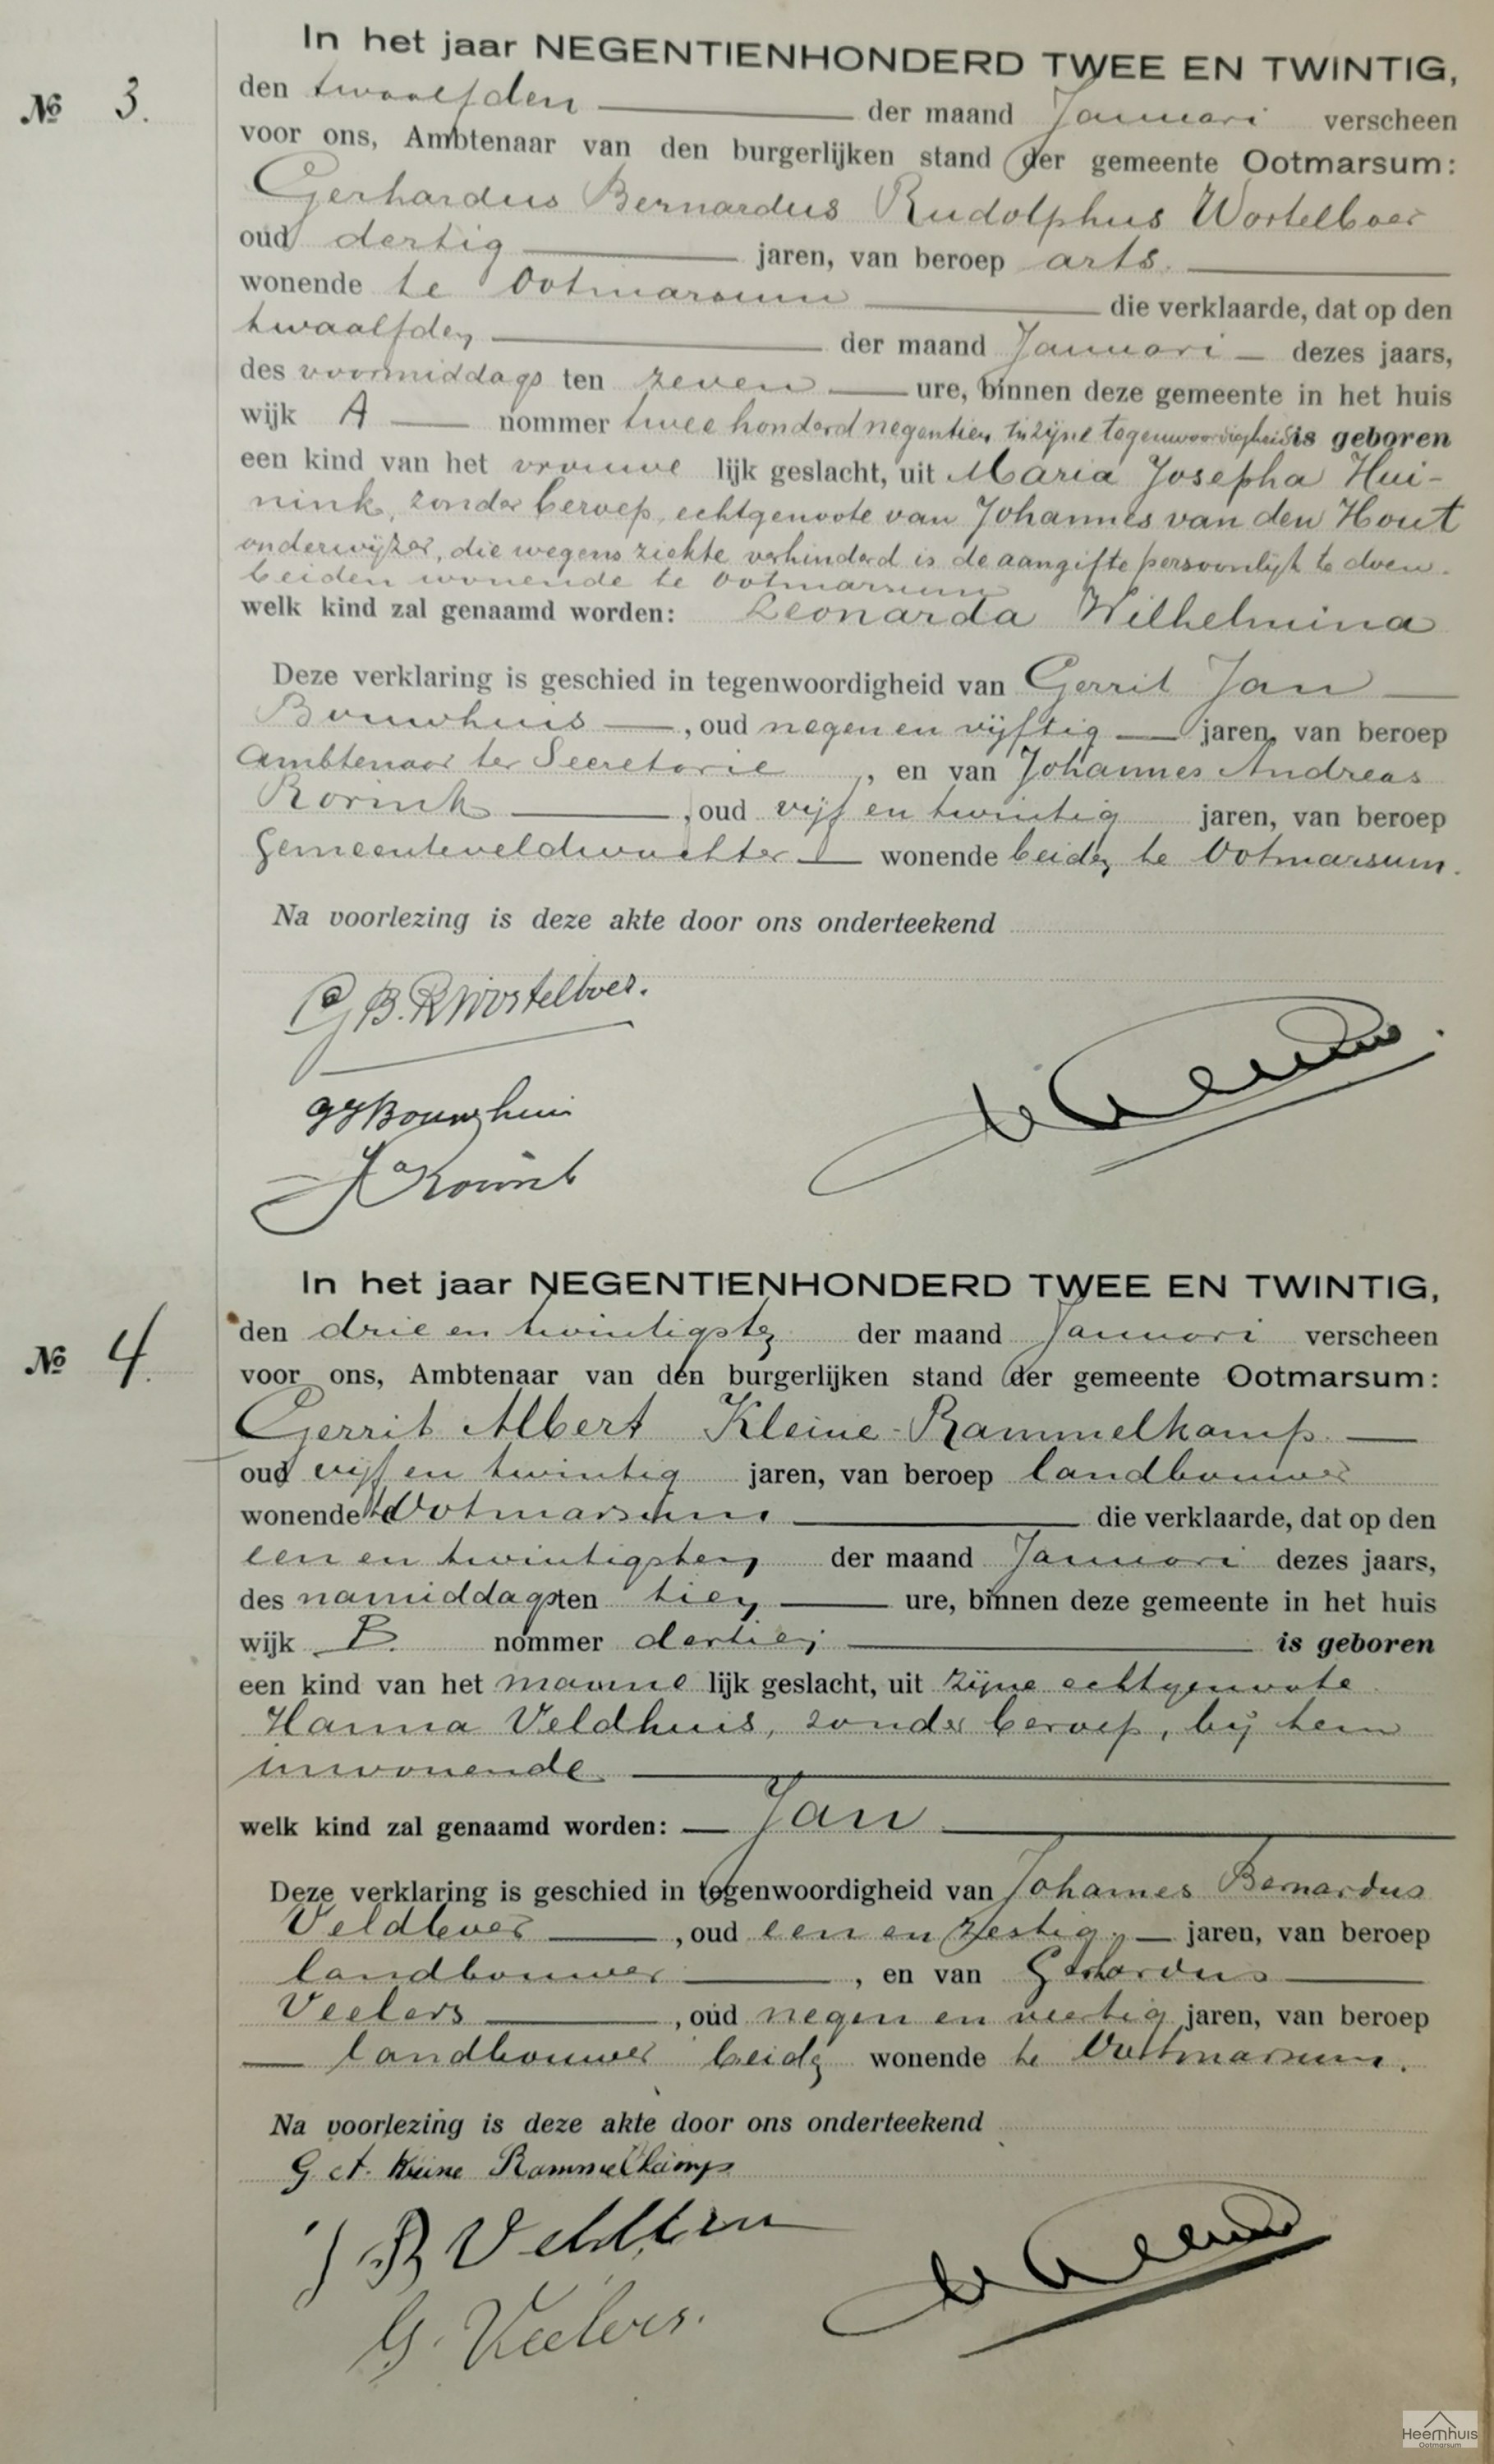 In het jaar NEGENTIENHONDERD TWEE EN TWINTIG,
№ 3.
den twaalfden der maand Januari verscheen
voor ons, Ambtenaar van den burgerlijken stand der gemeente Ootmarsum:
Gerhardus Bernardus Rudolphus Wortelboer
oud dertig jaren, van beroep arts.
wonende te Ootmarsum die verklaarde, dat op den
twaalfden der maand Januari dezes jaars,
des voormiddags ten zeven ure, binnen deze gemeente in het huis
wijk A nommer twee honderd negentien in zijne tegenwoordigheid is geboren
een kind van het vrouwe lijk geslacht, uit Maria Josepha Hui-
nink, zonder beroep, echtgenoote van Johannes van den Hout
onderwijzer, die wegens ziekte verhinderd is de aangifte persoonlijk te doen.
beiden wonende te Ootmarsum
welk kind zal genaamd worden: Leonarda Wilhelmina
Deze verklaring is geschied in tegenwoordigheid van Gerrit Jan
Bouwhuis, oud negen en vijftig jaren, van beroep
ambtenaar ter Secretarie, en van Johannes Andreas
Rorink, oud vijf en twintig jaren, van beroep
gemeenteveldwachter wonende beiden te Ootmarsum.
Na voorlezing is deze akte door ons onderteekend
G B. R Wortelboer.
GJ Bouwhuis
JA Rorink
In het jaar NEGENTIENHONDERD TWEE EN TWINTIG,
№ 4.
den drie en twintigsten der maand Januari verscheen
voor ons, Ambtenaar van den burgerlijken stand der gemeente Ootmarsum:
Gerrit Albert Kleine-Rammelkamp.
oud vijf en twintig jaren, van beroep landbouwer
wonende te Ootmarsum die verklaarde, dat op den
een en twintigsten der maand Januari dezes jaars,
des namiddags ten tien ure, binnen deze gemeente in het huis
wijk B. nommer dertien is geboren
een kind van het manne lijk geslacht, uit zijne echtgenoote
Hanna Veldhuis, zonder beroep, bij hem
inwonende
welk kind zal genaamd worden: Jan
Deze verklaring is geschied in tegenwoordigheid van Johannes Bernardus
Veldboer, oud een en zestig jaren, van beroep
landbouwer, en van Gerhardus
Veelers, oud negen en veertig jaren, van beroep
landbouwer beiden wonende te Ootmarsum.
Na voorlezing is deze akte door ons onderteekend
G. A. Kleine Rammelkamp
J B Veldboer
G. Veelers.
Heemhuis
Ootmarsum